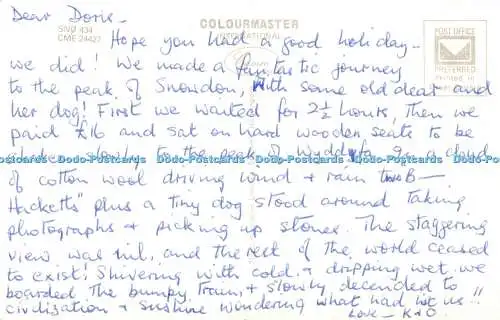 Dear Doris -
SNO 434
CME 24427
COLOURMASTER
INTERNATIONAL
POST OFFICE
PREFERRED
Hope you had a good holiday -
we did! We made a fantastic journey
to the peak of Snowdon, with some old dear and
her dog! First we waited for 2½ hours, then we
paid £16 and sat on hard wooden seats to be
slowly to the peak of in a cloud
Dodo-Postcards Dodo-Postcards Dodo-Postcards Dodo-Postcards Dodo-Postcards
of cotton wool driving wind + rain two B-
Hacketts" plus a tiny dog stood around taking
photographs + picking up stones. The staggering
view was nil, and the rest of the world ceased
to exist! Shivering with cold + dripping wet we
boarded The bumpy Train, + slowly decended to
civilization + sunshine wondering what had hit us!!
Love - K + O